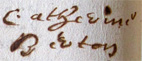 Catherine
Birton